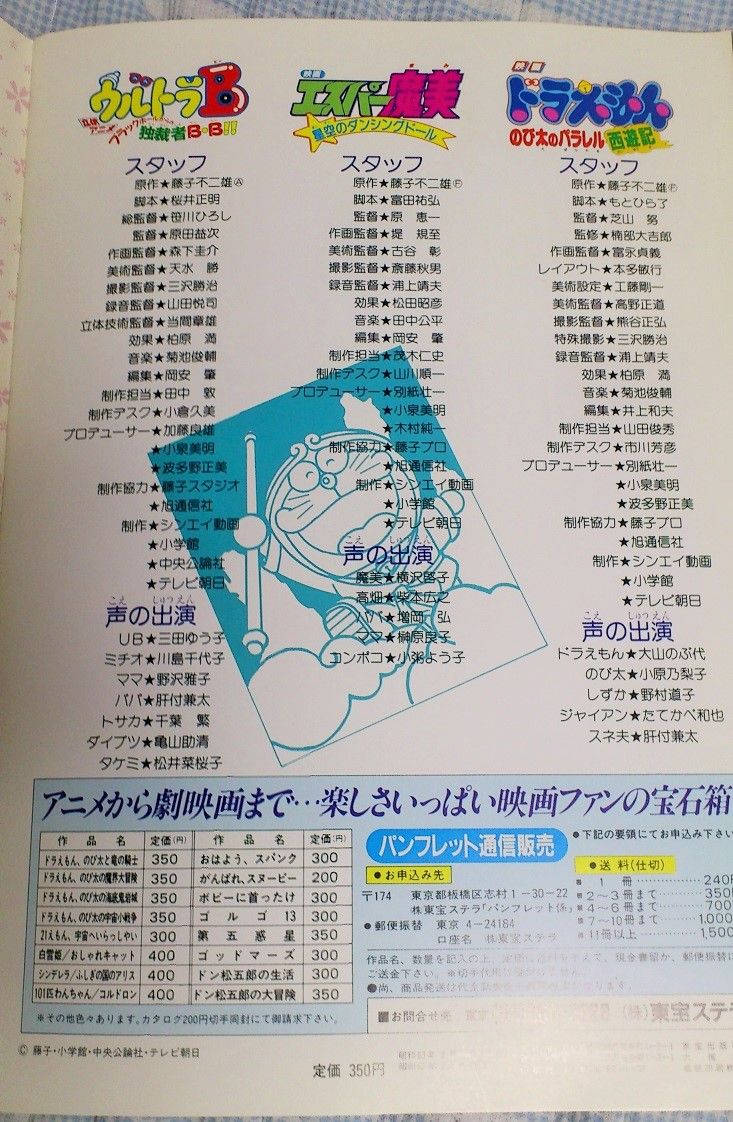 ウルトラB
立体アニメ ブラックホールからの独裁者B・B!!
スタッフ
原作★藤子不二雄Ⓐ
脚本★桜井正明
総監督★笹川ひろし
監督★原田益次
作画監督★森下圭介
美術監督★天水 勝
撮影監督★三沢勝治
録音監督★山田悦司
立体技術監督★当間章雄
効果★柏原 満
音楽★菊池俊輔
編集★岡安 肇
制作担当★田中 敦
制作デスク★小倉久美
プロデューサー★加藤良雄
★小泉美明
★波多野正美
制作協力★藤子スタジオ
★旭通信社
制作★シンエイ動画
★小学館
★中央公論社
★テレビ朝日
声の出演
こえ しゅつえん
UB★三田ゆう子
ミチオ★川島千代子
ママ★野沢雅子
パパ★肝付兼太
トサカ★千葉 繁
ダイブツ★亀山助清
タケミ★松井菜桜子
映画
エスパー魔美
星空のダンシングドール
スタッフ
原作★藤子不二雄Ⓕ
脚本★富田祐弘
監督★原 恵一
作画監督★堤 規至
美術監督★古谷 彰
撮影監督★斎藤秋男
録音監督★浦上靖夫
効果★松田昭彦
音楽★田中公平
編集★岡安 肇
制作担当★茂木仁史
制作デスク★山川順一
プロデューサー★別紙壮一
★小泉美明
★木村純一
制作協力★藤子プロ
★旭通信社
制作★シンエイ動画
★小学館
★テレビ朝日
こえ しゅつえん
声の出演
魔美★横沢啓子
高畑★柴本広之
パパ★増岡 弘
ママ★榊原良子
コンポコ★小粥よう子
映画
ドラえもん
のび太のパラレル西遊記
スタッフ
原作★藤子不二雄Ⓕ
脚本★もとひら了
監督★芝山 努
監修★楠部大吉郎
作画監督★富永貞義
レイアウト★本多敏行
美術設定★工藤剛一
美術監督★高野正道
撮影監督★熊谷正弘
特殊撮影★三沢勝治
録音監督★浦上靖夫
効果★柏原 満
音楽★菊池俊輔
編集★井上和夫
制作担当★山田俊秀
制作デスク★市川芳彦
プロデューサー★別紙壮一
★小泉美明
★波多野正美
制作協力★藤子プロ
★旭通信社
制作★シンエイ動画
★小学館
★テレビ朝日
こえ しゅつえん
声の出演
ドラえもん★大山のぶ代
のび太★小原乃梨子
しずか★野村道子
ジャイアン★たてかべ和也
スネ夫★肝付兼太
アニメから劇映画まで…楽しさいっぱい映画ファンの宝石箱
作品名 定価(円) 作品名 定価(円)
ドラえもん、のび太と竜の騎士 350 おはよう、スパンク 300
ドラえもん、のび太の魔界大冒険 350 がんばれ、スヌーピー 200
ドラえもん、のび太の海底鬼岩城 350 ボビーに首ったけ 300
ドラえもん、のび太の宇宙小戦争 350 ゴルゴ13 300
21えもん、宇宙へいらっしゃい 300 第五惑星 350
白雪姫/おしゃれキャット 400 ゴッドマーズ 300
シンデレラ/ふしぎの国のアリス 400 ドン松五郎の生活 300
101匹わんちゃん/コルドロン 400 ドン松五郎の大冒険 350
※その他色々あります。カタログ200円切手同封にて御請求下さい。
パンフレット通信販売
●お申込み先
〒174 東京都板橋区志村1-30-22
㈱東宝ステラ「パンフレット係」
●郵便振替 東京 4-24184
口座名 ㈱東宝ステラ
●下記の要領にてお申込み下さい
●送料(仕切)
1 冊 240円
2〜3冊まで 350
4〜6冊まで 700
7〜10冊まで 1,000
11冊以上 1,500
作品名、数量を記入の上、定価に送料を 現金書留か、郵便振替に
ご送金下さい。
●尚、商品発送は
■お問合せ先 東京 (株)東宝ステ
© 藤子・小学館・中央公論社・テレビ朝日
定価 350円